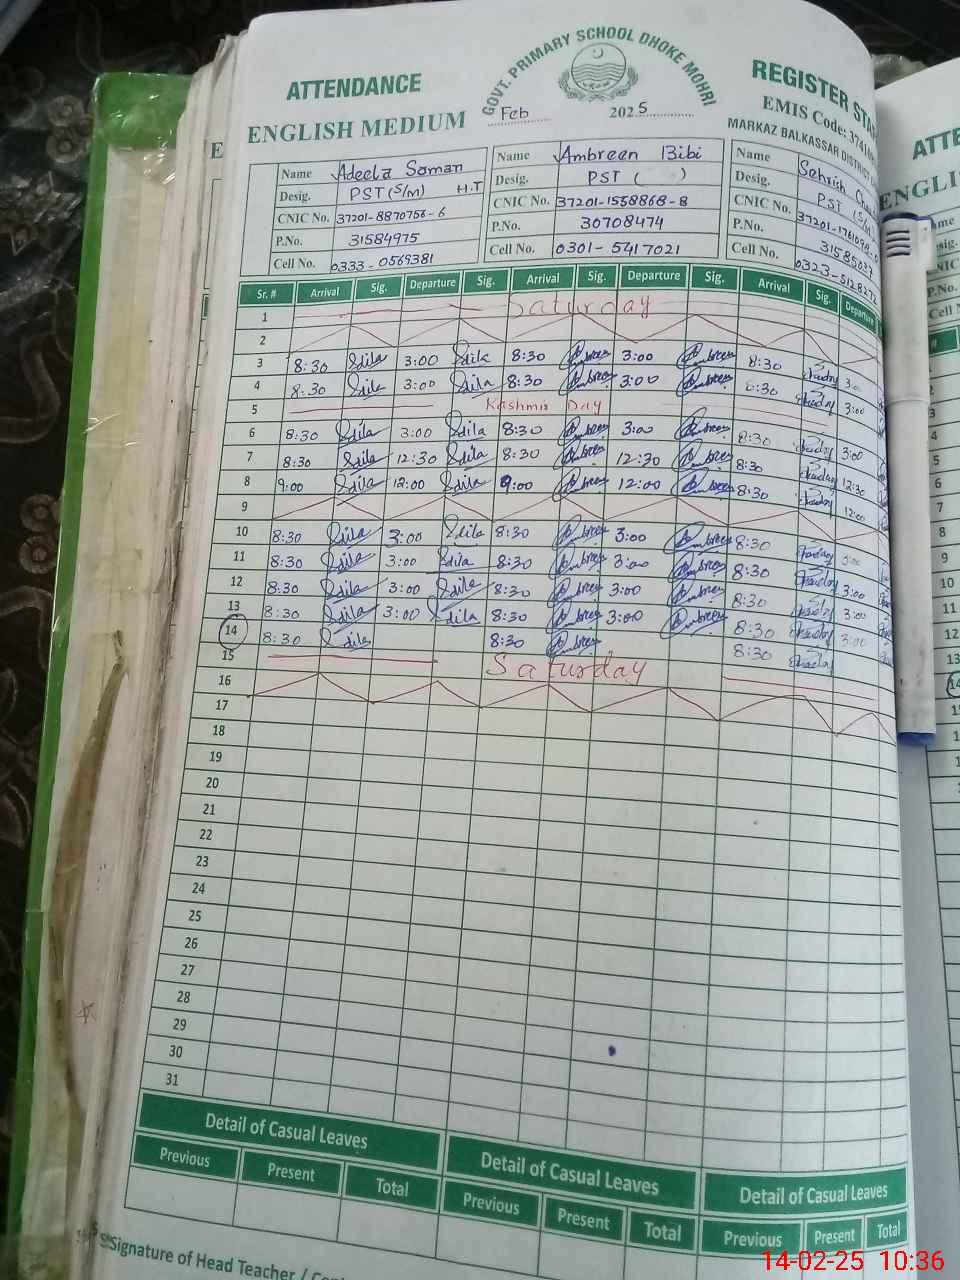 GOVT. PRIMARY SCHOOL DHOKE MOHRI
ATTENDANCE
REGISTER
ENGLISH MEDIUM
Feb 2025
EMIS Code:
MARKAZ BALKASSAR DISTRICT
Name Adeela Saman Name Ambreen Bibi Name Sehrish
Desig. PST (S/M) H.T Desig. PST ( ) Desig. PST (S/M)
CNIC No. 37201-8870756-6 CNIC No. 37201-1558868-8 CNIC No.
P.No. 31584975 P.No. 30708474 P.No.
Cell No. 0333-0569381 Cell No. 0301-5417021 Cell No. 0323-5128272
Sr. # Arrival Sig. Departure Sig. Arrival Sig. Departure Sig. Arrival Sig. Departure
1 Saturday
2
3 8:30 Adila 3:00 Adila 8:30 Ambreen 3:00 Ambreen 8:30
4 8:30 Adila 3:00 Adila 8:30 Ambreen 3:00 Ambreen 8:30 3:00
5 Kashmir Day
6 8:30 Adila 3:00 Adila 8:30 Ambreen 3:00 Ambreen 8:30 3:00
7 8:30 Adila 12:30 Adila 8:30 Ambreen 12:30 Ambreen 8:30 12:30
8 9:00 Adila 12:00 Adila 9:00 Ambreen 12:00 Ambreen 8:30 12:00
9
10 8:30 Adila 3:00 Adila 8:30 Ambreen 3:00 Ambreen 8:30 3:00
11 8:30 Adila 3:00 Adila 8:30 Ambreen 3:00 Ambreen 8:30 3:00
12 8:30 Adila 3:00 Adila 8:30 Ambreen 3:00 Ambreen 8:30 3:00
13 8:30 Adila 3:00 Adila 8:30 Ambreen 3:00 Ambreen 8:30 3:00
14 8:30 Adila 8:30 Ambreen 8:30
15 Saturday
16
17
18
19
20
21
22
23
24
25
26
27
28
29
30
31
Detail of Casual Leaves Detail of Casual Leaves Detail of Casual Leaves
Previous Present Total Previous Present Total Previous Present Total
Signature of Head Teacher /
14-02-25 10:36